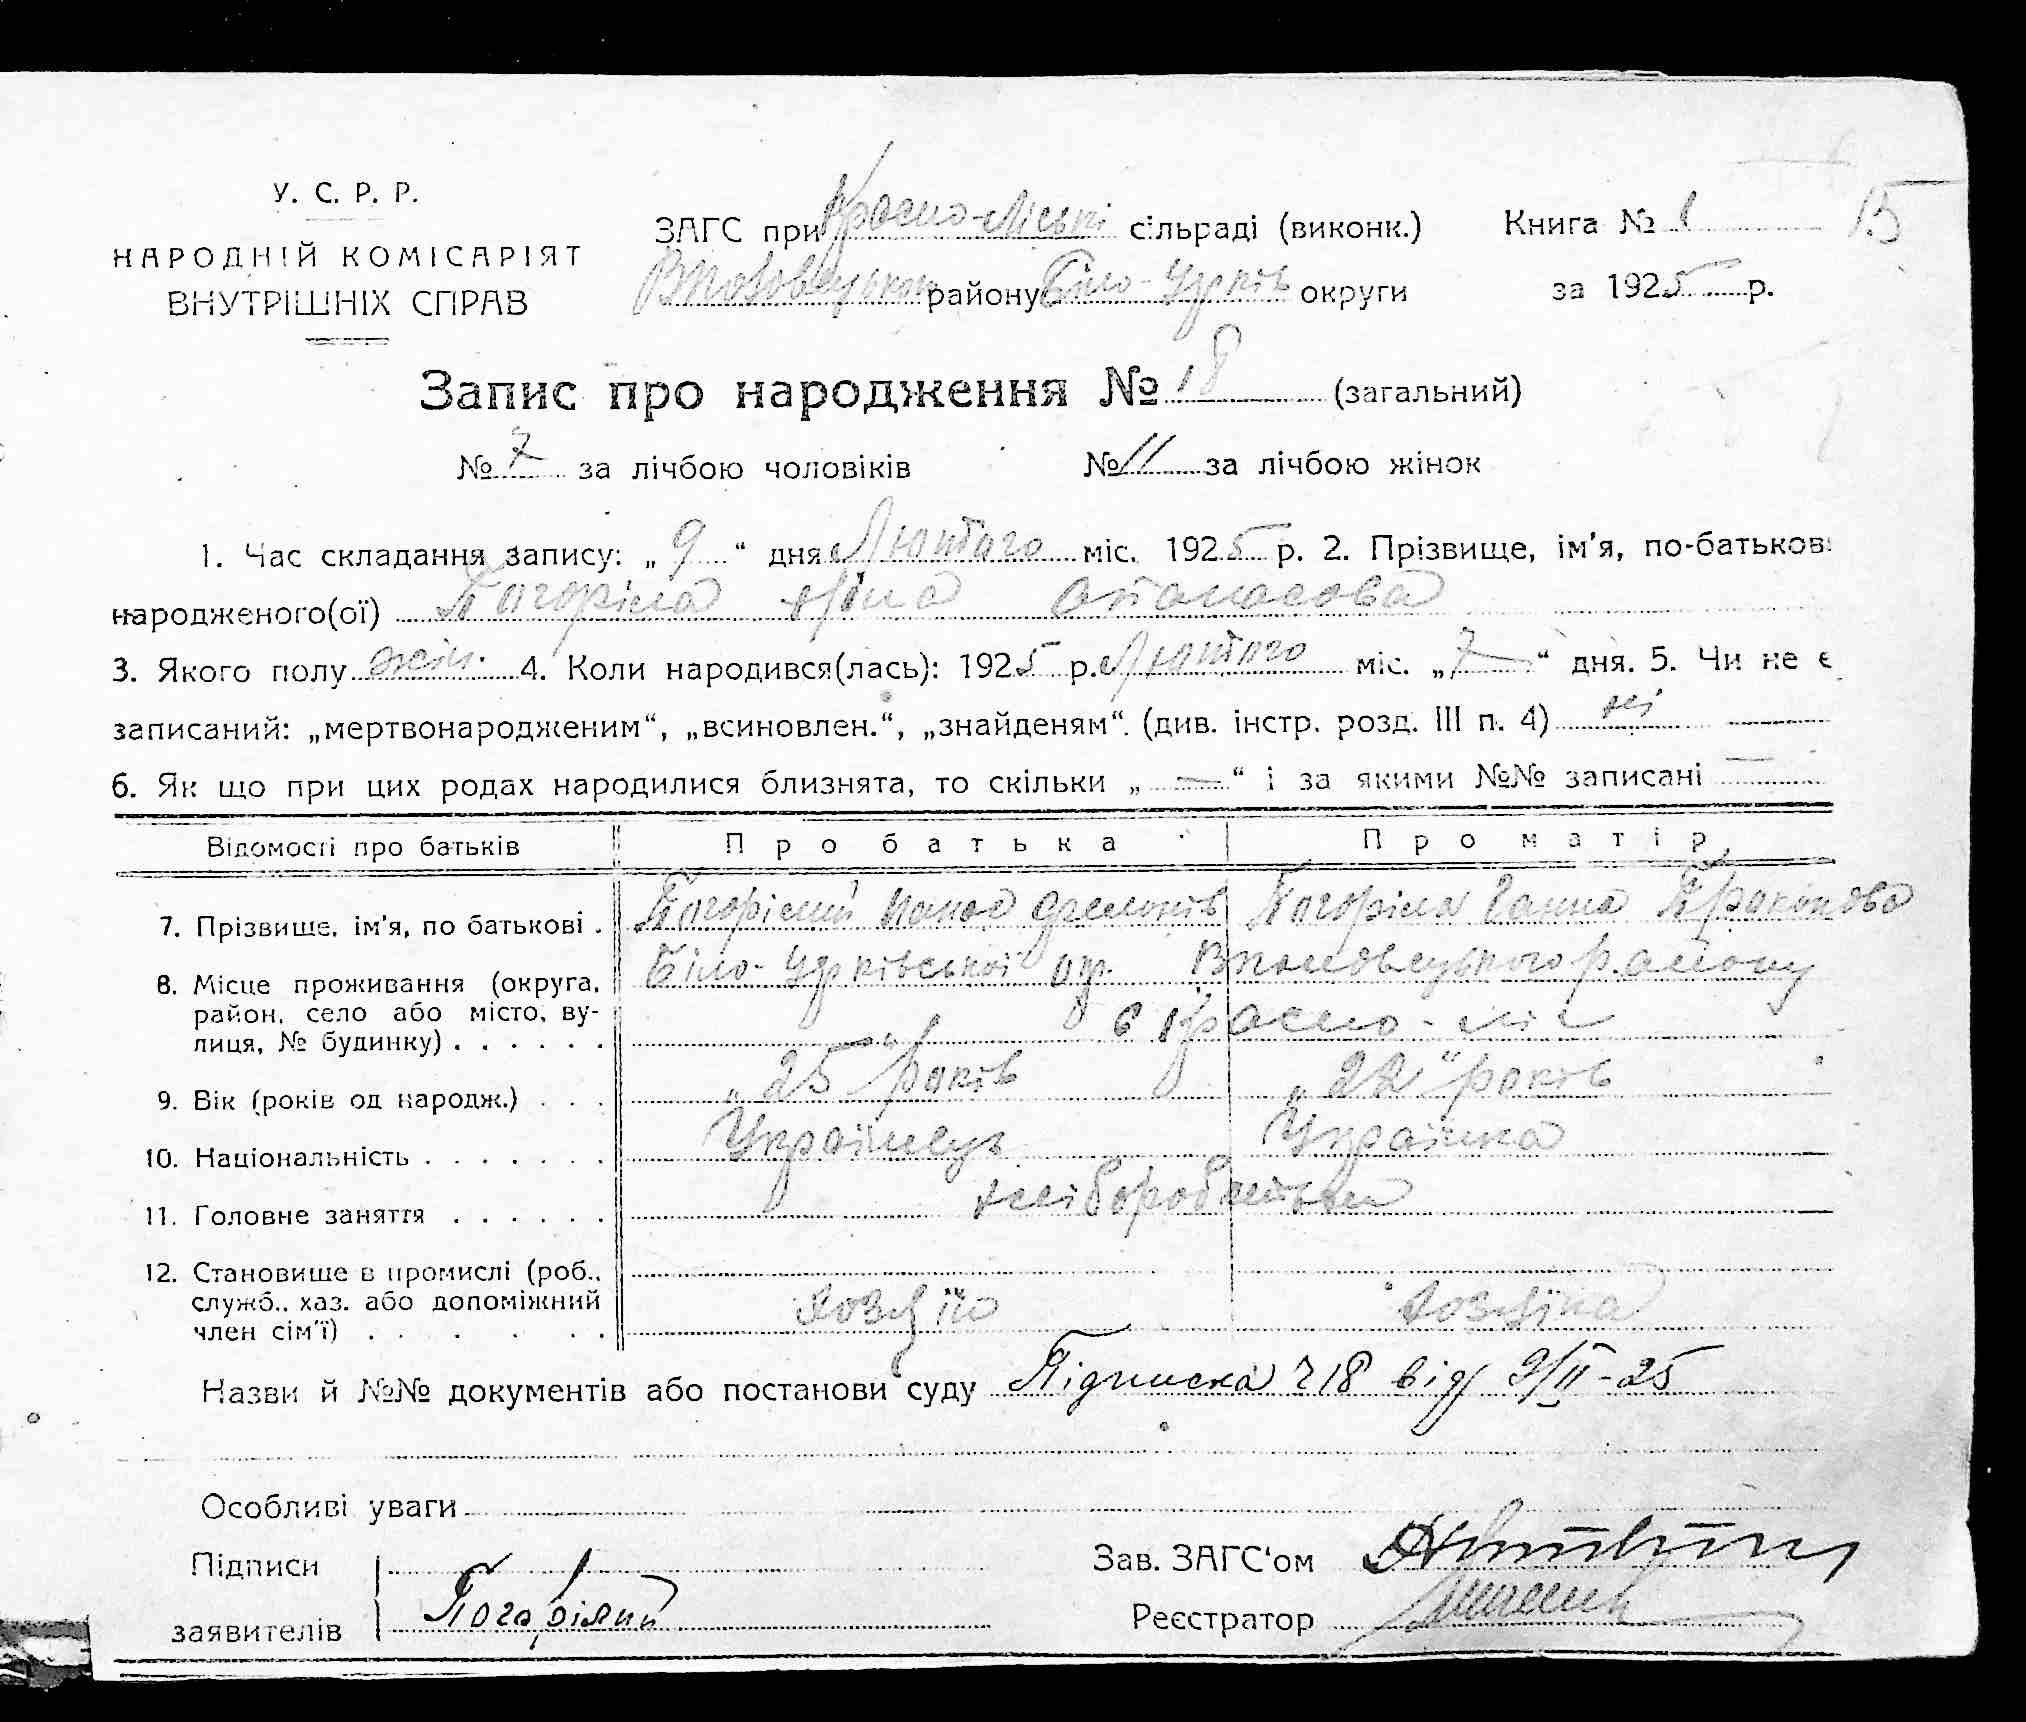 У. С. Р. Р.
НАРОДНІЙ КОМІСАРІЯТ
ВНУТРІШНІХ СПРАВ
ЗАГС при Красно-Ліські сільраді (виконк.)
району Біло-Церків округи
Книга № 1
15
за 1925 р.
Запис про народження № 18 (загальний)
№ 7 за лічбою чоловіків № 11 за лічбою жінок
1. Час складання запису: „ 9 “ дня Лютого міс. 1925 р. 2. Прізвище, ім’я, по-батькові
народженого(ої) Погоріла Ніна Опанасова
3. Якого полу жін. 4. Коли народився(лась): 1925 р. Лютого міс. „ 7 “ дня. 5. Чи не є
записаний: „мертвонародженим“, „всиновлен.“, „знайденям“. (див. інстр. розд. III п. 4) ні
6. Як що при цих родах народилися близнята, то скільки „ — “ і за якими №№ записані —
Відомості про батьків Про батька Про матір
7. Прізвище, ім’я, по батькові . Погорілий Панас Погоріла Ганна Праконова
8. Місце проживання (округа, район, село або місто, ву-лиця, № будинку) . . . . . . Біло-Церківської окр. району
с Красно-Ліс
9. Вік (років од народж.) . . . „25“ років „22“ років
10. Національність . . . . . . . Українець Українка
11. Головне заняття . . . . . . хліборобство
12. Становище в промислі (роб.,
служб., хаз. або допоміжний
член сім’ї) . . . . . . хозяїн хозяїка
Назви й №№ документів або постанови суду Підписка ч 18 від 9/II-25
Особливі уваги
Підписи
заявителів Погорілий
Зав. ЗАГС‘ом
Реєстратор